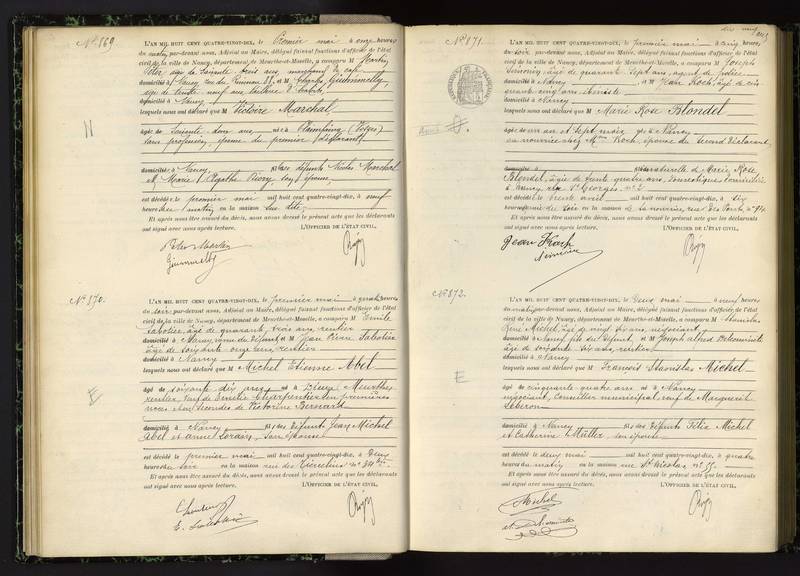 N° 869
L'AN MIL HUIT CENT QUATRE-VINGT-DIX, le Premier mai à onze heures
du matin par-devant nous, Adjoint au Maire, délégué faisant fonctions d'officier de l'état
civil de la ville de Nancy, département de Meurthe-et-Moselle, a comparu M Martin
âgé de soixante trois ans, marchand de
domicilié à Nancy, rue et M Charles
âge de trente neuf ans
domicilié à Nancy
lesquels nous ont déclaré que M Victoire Marchal
âgée de soixante ans née à Plainfaing (Vosges)
sans profession, épouse du premier déclarant
domiciliée à Nancy, fille des défunts Nicolas Marchal
et Marie Agathe son épouse,
est décédée le premier mai mil huit cent quatre-vingt-dix, à neuf
heures du matin en la maison
Et après nous être assuré du décès, nous avons dressé le présent acte que les déclarants
ont signé avec nous après lecture. L'OFFICIER DE L'ÉTAT CIVIL,
N° 870.
L'AN MIL HUIT CENT QUATRE-VINGT-DIX, le premier mai à quatre heures
du soir par-devant nous, Adjoint au Maire, délégué faisant fonctions d'officier de l'état
civil de la ville de Nancy, département de Meurthe-et-Moselle, a comparu M Emile
âgé de quarante trois ans, rentier
domicilié à Nancy, du défunt et M Jean Pierre
âgé de soixante onze ans, rentier
domicilié à Nancy
lesquels nous ont déclaré que M Michel Etienne Abel
âgé de soixante dix ans né à Meurthe
rentier, veuf de Charpentier en premières
noces et en secondes de Victorine Bernard
domicilié à Nancy fils des défunts Jean Michel
Abel et Anne Lorain, son épouse
est décédé le premier mai mil huit cent quatre-vingt-dix, à deux
heures du soir en la maison rue des Tiercelins n° 34 bis.
Et après nous être assuré du décès, nous avons dressé le présent acte que les déclarants
ont signé avec nous après lecture. L'OFFICIER DE L'ÉTAT CIVIL,
E
N° 871.
L'AN MIL HUIT CENT QUATRE-VINGT-DIX, le premier mai à cinq heures
du soir par-devant nous, Adjoint au Maire, délégué faisant fonctions d'officier de l'état
civil de la ville de Nancy, département de Meurthe-et-Moselle, a comparu M Joseph
âgé de quarante sept ans, agent de police
domicilié à Nancy et M Jean Koch, âgé de cin
quante cinq ans
domicilié à Nancy
lesquels nous ont déclaré que M Marie Rose Blondel
âgée de un an et sept mois née à Nancy
en nourrice chez Mme Koch, épouse du second déclarant
domiciliée à fille naturelle de Marie Rose
Blondel, âgée de trente quatre ans, domestique, domiciliée
à Nancy, rue St Georges n° 2
est décédée le trente avril mil huit cent quatre-vingt-dix, à six
heures du soir en la maison de sa nourrice, rue du
Et après nous être assuré du décès, nous avons dressé le présent acte que les déclarants
ont signé avec nous après lecture. L'OFFICIER DE L'ÉTAT CIVIL,
Jean Koch
N° 872.
L'AN MIL HUIT CENT QUATRE-VINGT-DIX, le deux mai à neuf heures
du matin par-devant nous, Adjoint au Maire, délégué faisant fonctions d'officier de l'état
civil de la ville de Nancy, département de Meurthe-et-Moselle, a comparu M Stanislas
René Michel, âgé de vingt six ans, négociant,
domicilié à Nancy, fils du défunt et M Joseph Alfred
âgé de soixante dix ans, rentier
domicilié à Nancy
lesquels nous ont déclaré que M François Stanislas Michel
âgé de cinquante quatre ans né à Nancy
négociant, Conseiller municipal, veuf de Marguerite
domicilié à Nancy fils des défunts Félix Michel
et Catherine Müller, son épouse
est décédé le deux mai mil huit cent quatre-vingt-dix, à quatre
heures du matin en la maison rue St Nicolas n° 55.
Et après nous être assuré du décès, nous avons dressé le présent acte que les déclarants
ont signé avec nous après lecture. L'OFFICIER DE L'ÉTAT CIVIL,
E
Michel